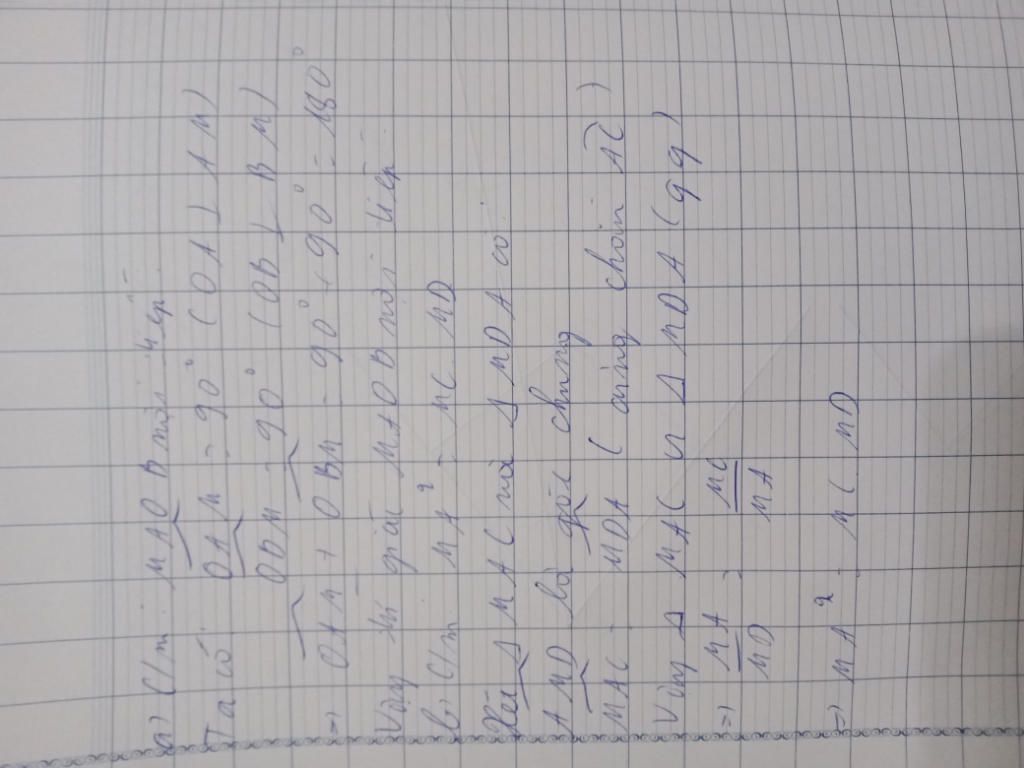 a) C/m: MAOB nội tiếp
Ta có OAM = 90° (OA ⊥ AM)
OBM = 90° (OB ⊥ BM)
=) OAM + OBM = 90° + 90° = 180°
Vậy tứ giác MAOB nội tiếp
b) C/m MA² = MC. MD
Xét Δ MAC và Δ MDA có:
AMD là góc chung
MAC = MDA ( cùng chắn AC )
Vậy Δ MAC ∽ Δ MDA (gg)
=) MA/MD = MC/MA
=) MA² = MC. MD